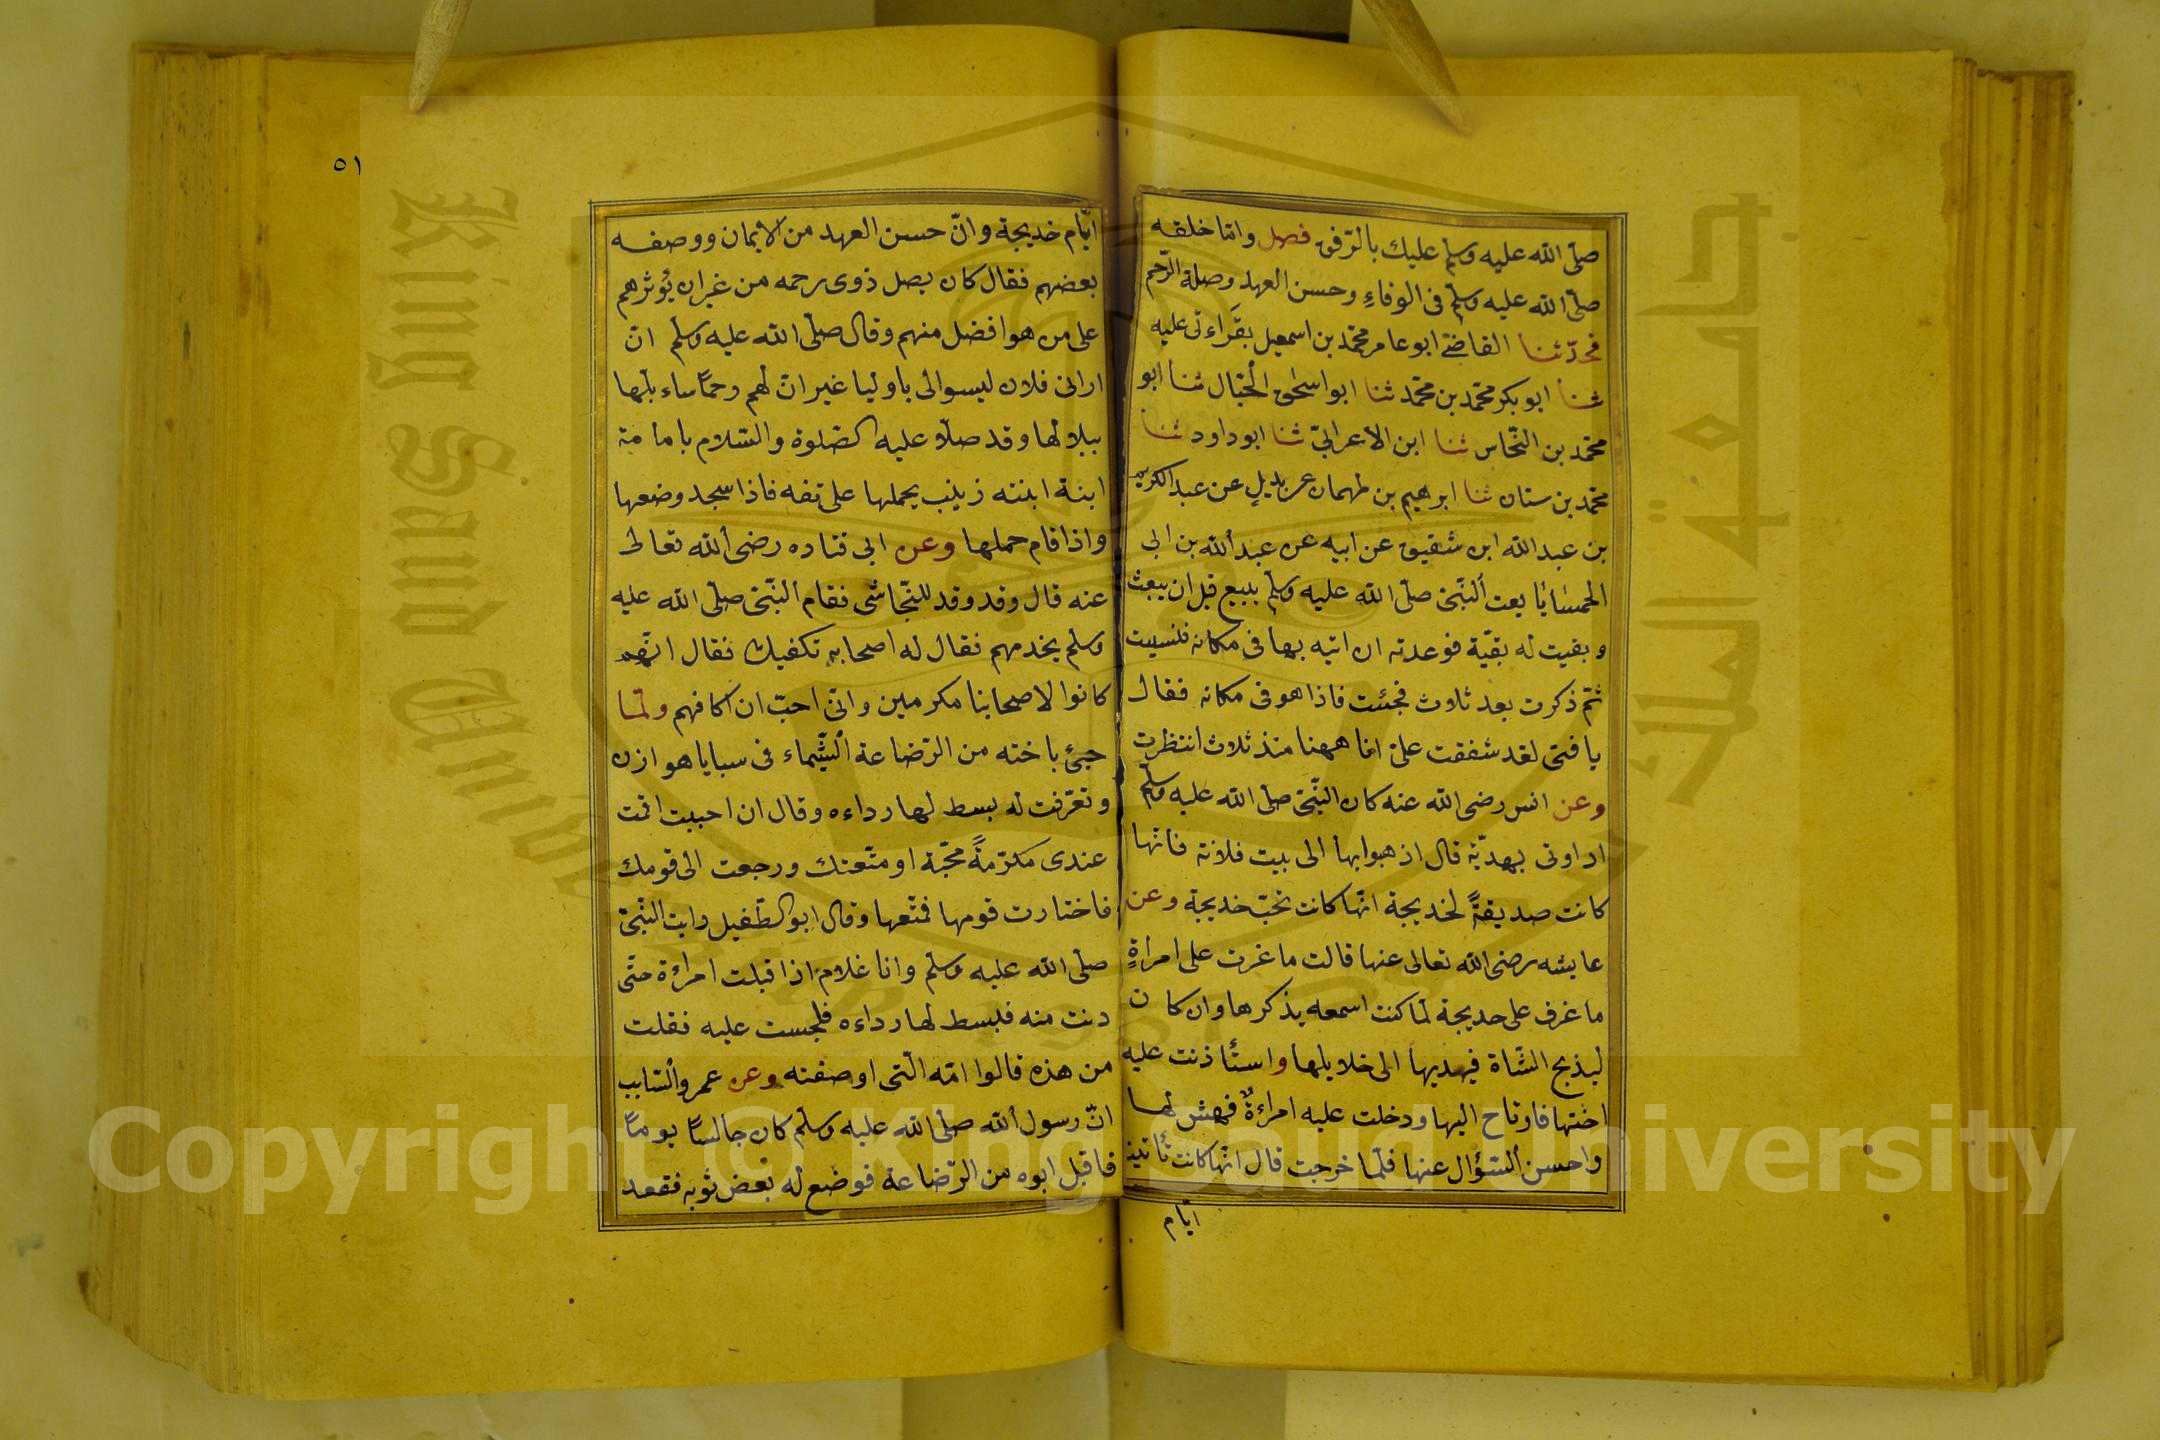 صلّى الله عليه وسلّم عليك بالرّفق فصل وامّا خلقه
صلّى الله عليه وسلّم فى الوفاءِ وحسن العهد وصلة الرّحم
فحدّثنا القاضى ابو عامر محمّد بن اسمعيل بقراءتى عليه
ثنا ابو بكر محمّد بن محمّد ثنا ابو اسحق الحبّال ثنا ابو
محمّد بن النّحاس ثنا ابن الاعرابىّ ثنا ابو داود ثنا
محمّد بن سنان ثنا ابرهيم بن طهمان عن بديل عن عبد الكريم
بن عبد الله ابن شقيق عن ابيه عن عبد الله بن ابى
الحمساء بايعت النّبىّ صلّى الله عليه وسلّم ببيع قبل ان يبعث
وبقيت له بقيّة فوعدته ان اتيه بها فى مكانه فنسيت
ثمّ ذكرت بعد ثلاث فجئت فاذا هو فى مكانه فقال
يا فتى لقد شققت علىّ انا ههنا منذ ثلاث انتظرت
وعن انس رضى الله عنه كان النّبىّ صلّى الله عليه وسلّم
اذا اوتى بهديّة قال اذهبوا بها الى بيت فلانة فانّها
كانت صديقةً لخديجة انّها كانت تحبّ خديجة وعن
عايشه رضى الله تعالى عنها قالت ما غرت على امراةٍ
ما غرف على خديجة لما كنت اسمعه يذكرها وان كان
ليذبح الشّاة فيهديها الى خلايلها واستأذنت عليه
اختها فارتاح اليها ودخلت عليه امراءةٌ فهش لها
واحسن السّؤال عنها فلمّا خرجت قال انّها كانت تأتينا
ايّام
٥١
ايّام خديجة وانّ حسن العهد من الايمان ووصفه
بعضهم فقال كان يصل ذوى رحمه من غير ان يؤثرهم
على من هو افضل منهم وقال صلّى الله عليه وسلّم انّ
ال ابى فلان ليسوا لى باوليا غير انّ لهم رحمًا سابلّها
ببلالها وقد صلّا عليه الصّلوة والسّلام بامامة
ابنة ابنته زينب يحملها على فاذا سجد وضعها
واذا قام حملها وعن ابى قتاده رضى الله تعالى
عنه قال وفد وفد للنّجاشى فقام النّبىّ صلّى الله عليه
وسلم يخدمهم فقال له اصحابه نكفيك فقال انّهم
كانوا لاصحابنا مكرمين وانّى احبّ ان اكافهم ولمّا
جئ باخته من الرّضاعة الشّيماء فى سبايا هوازن
وتعرّفت له بسط لها رداءه وقال ان احببت اقمت
عندى مكرّمةً محبّة او متّعتك ورجعت الى قومك
فاختارت قومها فمتّعها وقال ابو الطّفيل رايت النّبىّ
صلّى الله عليه وسلّم وانا غلام اذا قبلت امراءة حتّى
دنت منه فبسط لها رداءه فلجست عليه فقلت
من هذه قالوا امّه الّتى اوضعته وعن عمرو السّايب
انّ رسول الله صلّى الله عليه وسلّم كان جالسًا يومًا
فاقبل ابوه من الرّضاعة فوضع له بعض ثوبه فقعد
King Saud University
جامعة الملك سعود
Copyright © King Saud University